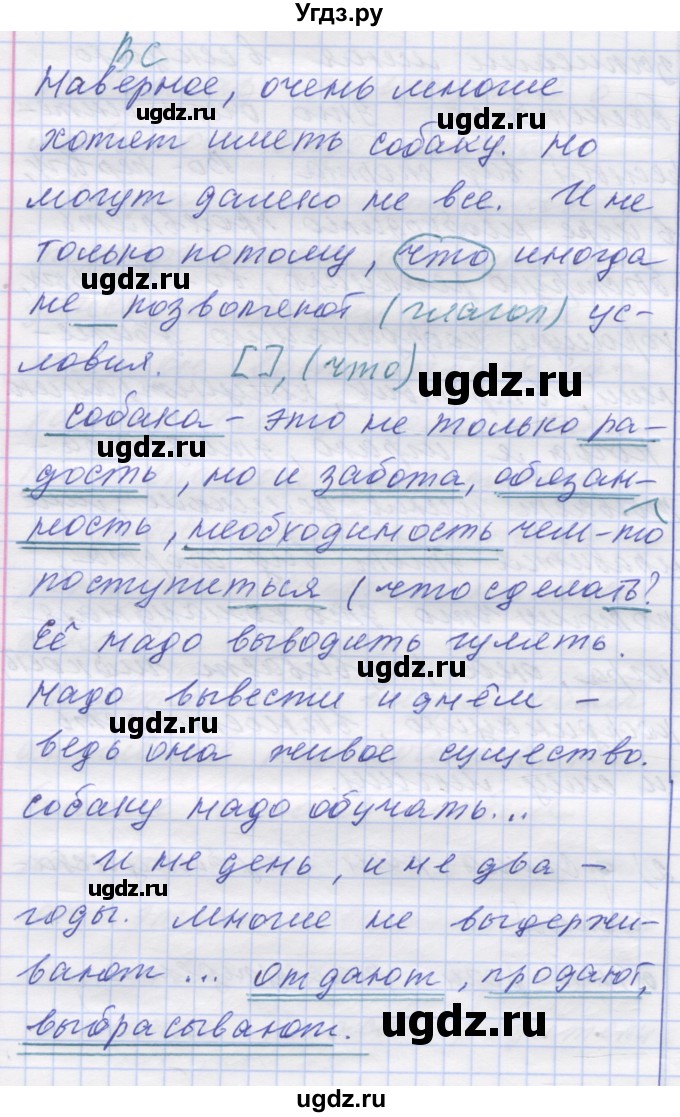 Угдз.ру
ВС
Наверное, очень многие
ugdz.ru ugdz.ru
хотят иметь собаку. Но
могут далеко не все. И не
только потому, что иногда
ugdz.ru
не позволяют (глагол) ус-
ловия. [ ], (что)
ugdz.ru
собака – это не только ра-
ugdz.ru
дость, но и забота, обязан-
ность, необходимость чем-то
поступиться (что сделать?
Её надо выводить гулять.
ugdz.ru
Надо вывести и днём –
ugdz.ru
ведь она живое существо.
собаку надо обучать...
И не день, и не два –
ugdz.ru
годы. Многие не выдержи-
вают... отдают, продают,
ugdz.ru
выбрасывают.
ugdz.ru
ugdz.ru